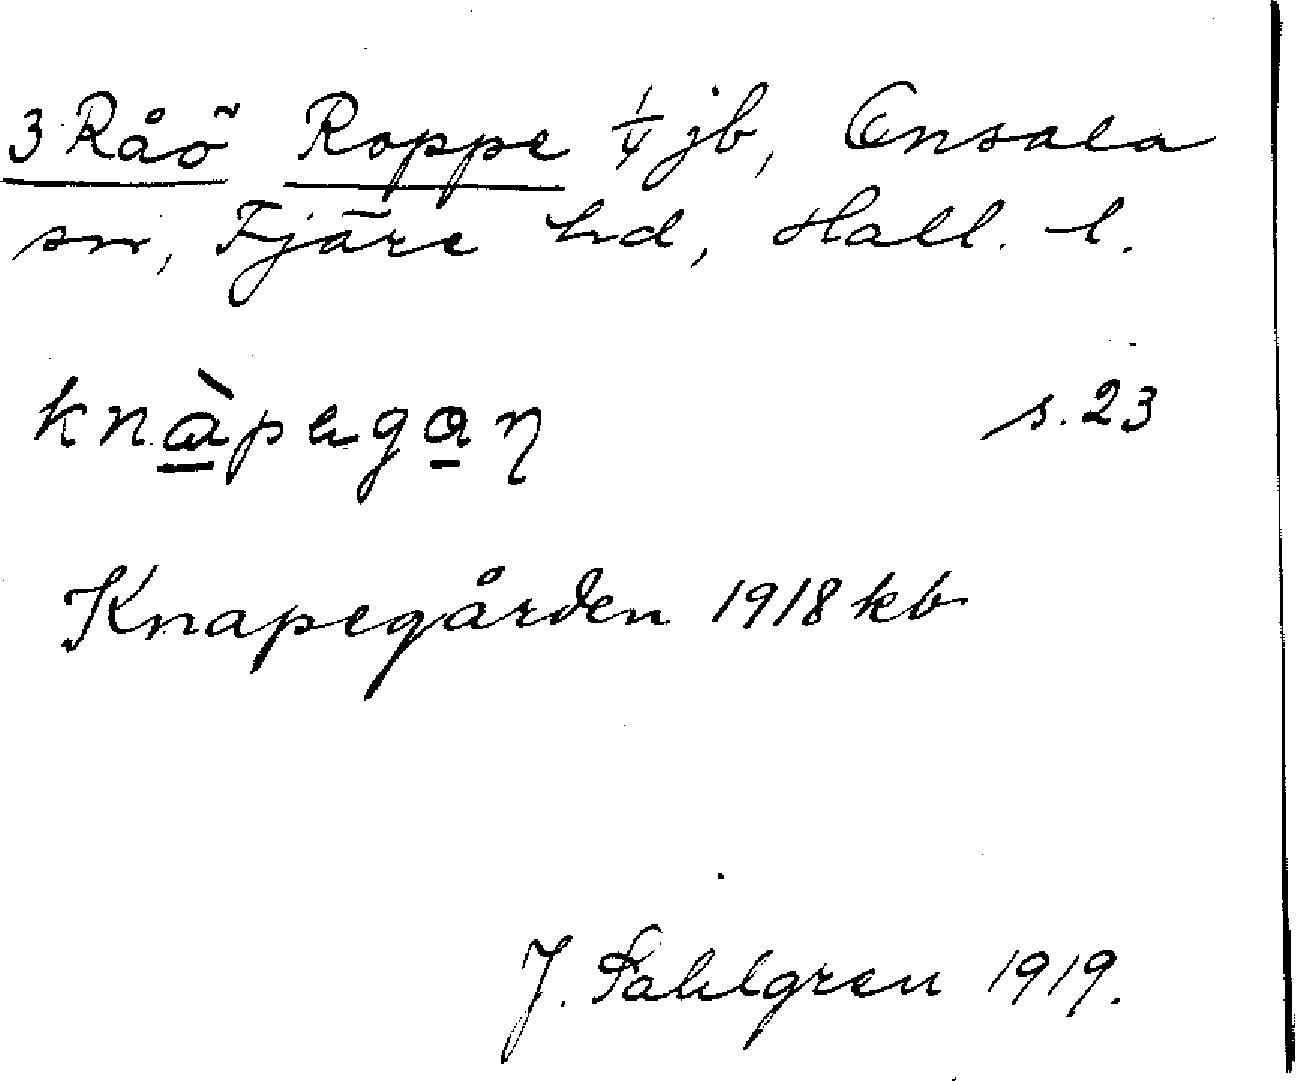 3 Råö Roppe 1/4 jb, Onsala
sn, Fjäre hd, Hall. l.
knàpegan s. 23
Knapegården 1918 kb
J. Sahlgren 1919.